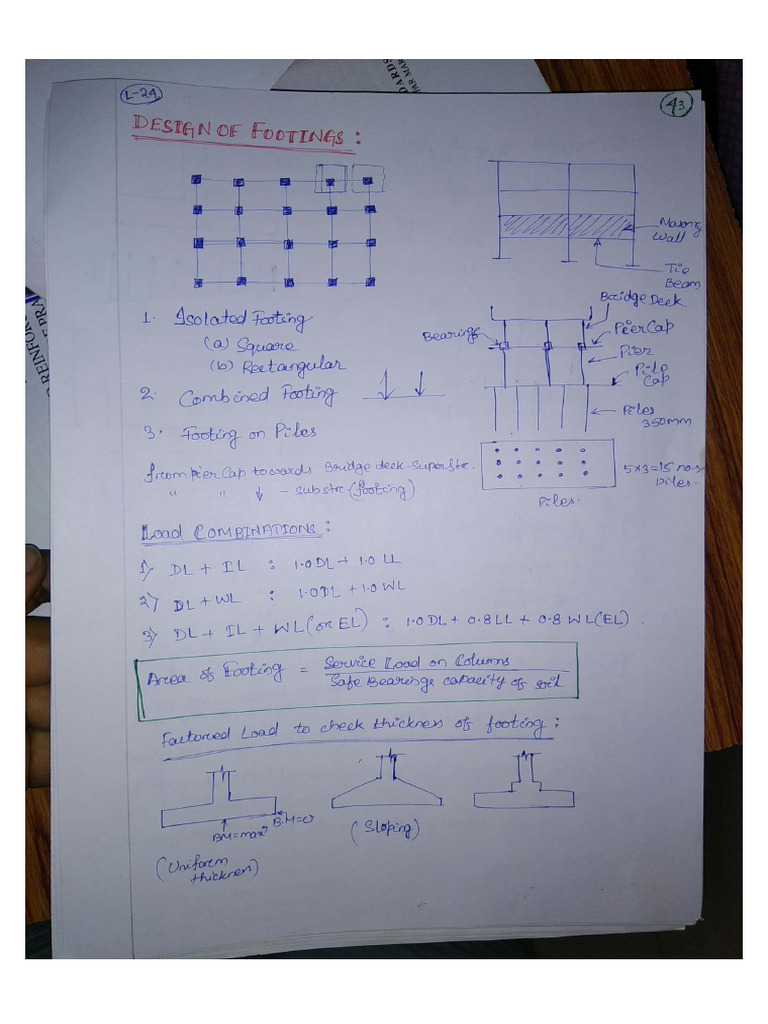 L-24
43
DARDS
FAR MAR
DESIGN OF FOOTINGS :
Masonry
Wall
Tie
Beam
Bridge Deck
Bearings
Pier Cap
Pier
Pile
Cap
Piles
350mm
5×3=15 nos
piles.
Piles.
1. Isolated Footing
(a) Square
(b) Rectangular
2. Combined Footing
3. Footing on Piles
from Pier Cap towards Bridge deck - Superstr.
" " ↓ - substr (footing)
LOAD COMBINATIONS :
1) DL + IL : 1.0 DL + 1.0 LL
2) DL + WL : 1.0 DL + 1.0 WL
3) DL + IL + WL (or EL) : 1.0 DL + 0.8 LL + 0.8 WL (EL) .
Area of Footing = Service Load on Columns
Safe Bearinge capacity of soil
Factored Load to check thickness of footing :
BM=max^m
B.M=0
(Uniform
thickness)
(Sloping)
REINFOR